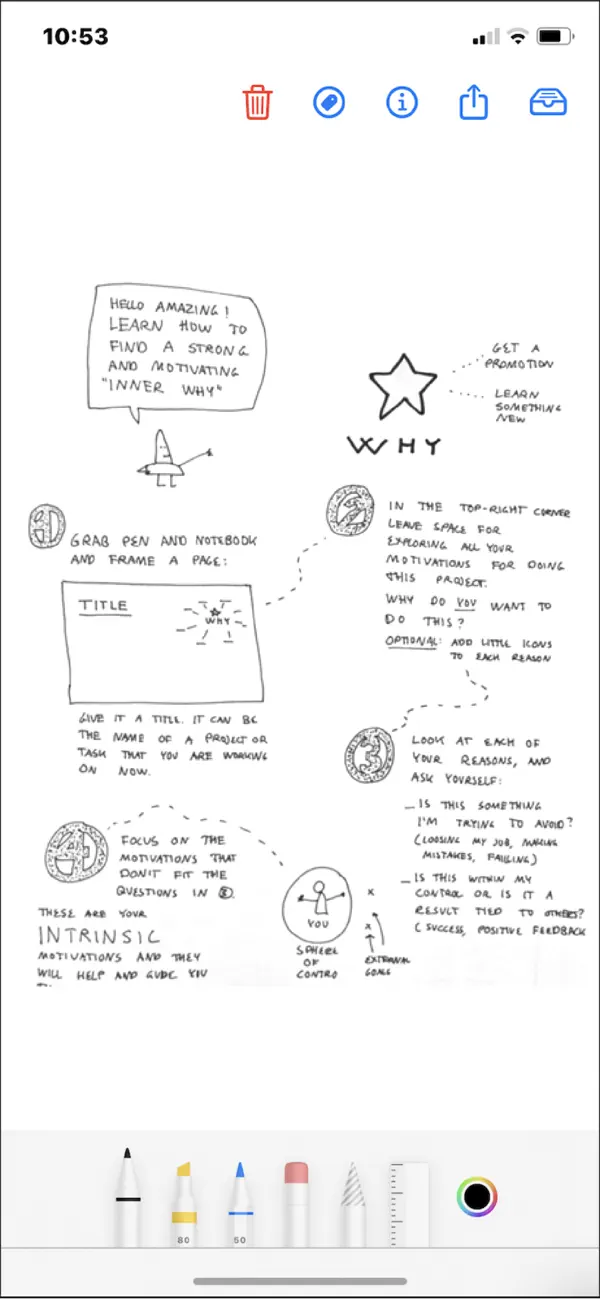 10:53
HELLO AMAZING!
LEARN HOW TO
FIND A STRONG
AND MOTIVATING
"INNER WHY"
GET A
PROMOTION
LEARN
SOMETHING
NEW
WHY
1
GRAB PEN AND NOTEBOOK
AND FRAME A PAGE:
TITLE
WHY
GIVE IT A TITLE. IT CAN BE
THE NAME OF A PROJECT OR
TASK THAT YOU ARE WORKING
ON NOW.
2
IN THE TOP-RIGHT CORNER
LEAVE SPACE FOR
EXPLORING ALL YOUR
MOTIVATIONS FOR DOING
THIS PROJECT.
WHY DO YOU WANT TO
DO THIS?
OPTIONAL: ADD LITTLE ICONS
TO EACH REASON
3
LOOK AT EACH OF
YOUR REASONS, AND
ASK YOURSELF:
_ IS THIS SOMETHING
I'M TRYING TO AVOID?
(LOOSING MY JOB, MAKING
MISTAKES, FAILING)
_ IS THIS WITHIN MY
CONTROL OR IS IT A
RESULT TIED TO OTHERS?
(SUCCESS, POSITIVE FEEDBACK
4
FOCUS ON THE
MOTIVATIONS THAT
DON'T FIT THE
QUESTIONS IN 3.
THESE ARE YOUR
INTRINSIC
MOTIVATIONS AND THEY
WILL HELP AND GUIDE YOU
YOU
SPHERE
OF
CONTRO
x
x
EXTERNAL
GOALS
80
50